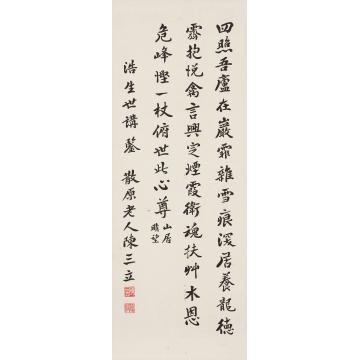 四照吾廬在巖霏雜雪痕深居養龍德
霽抱悅禽言興定煙霞衛魂扶艸木恩
危峰慳一杖俯世此心尊 山居曉望
浩生世講鑒 散原老人陳三立